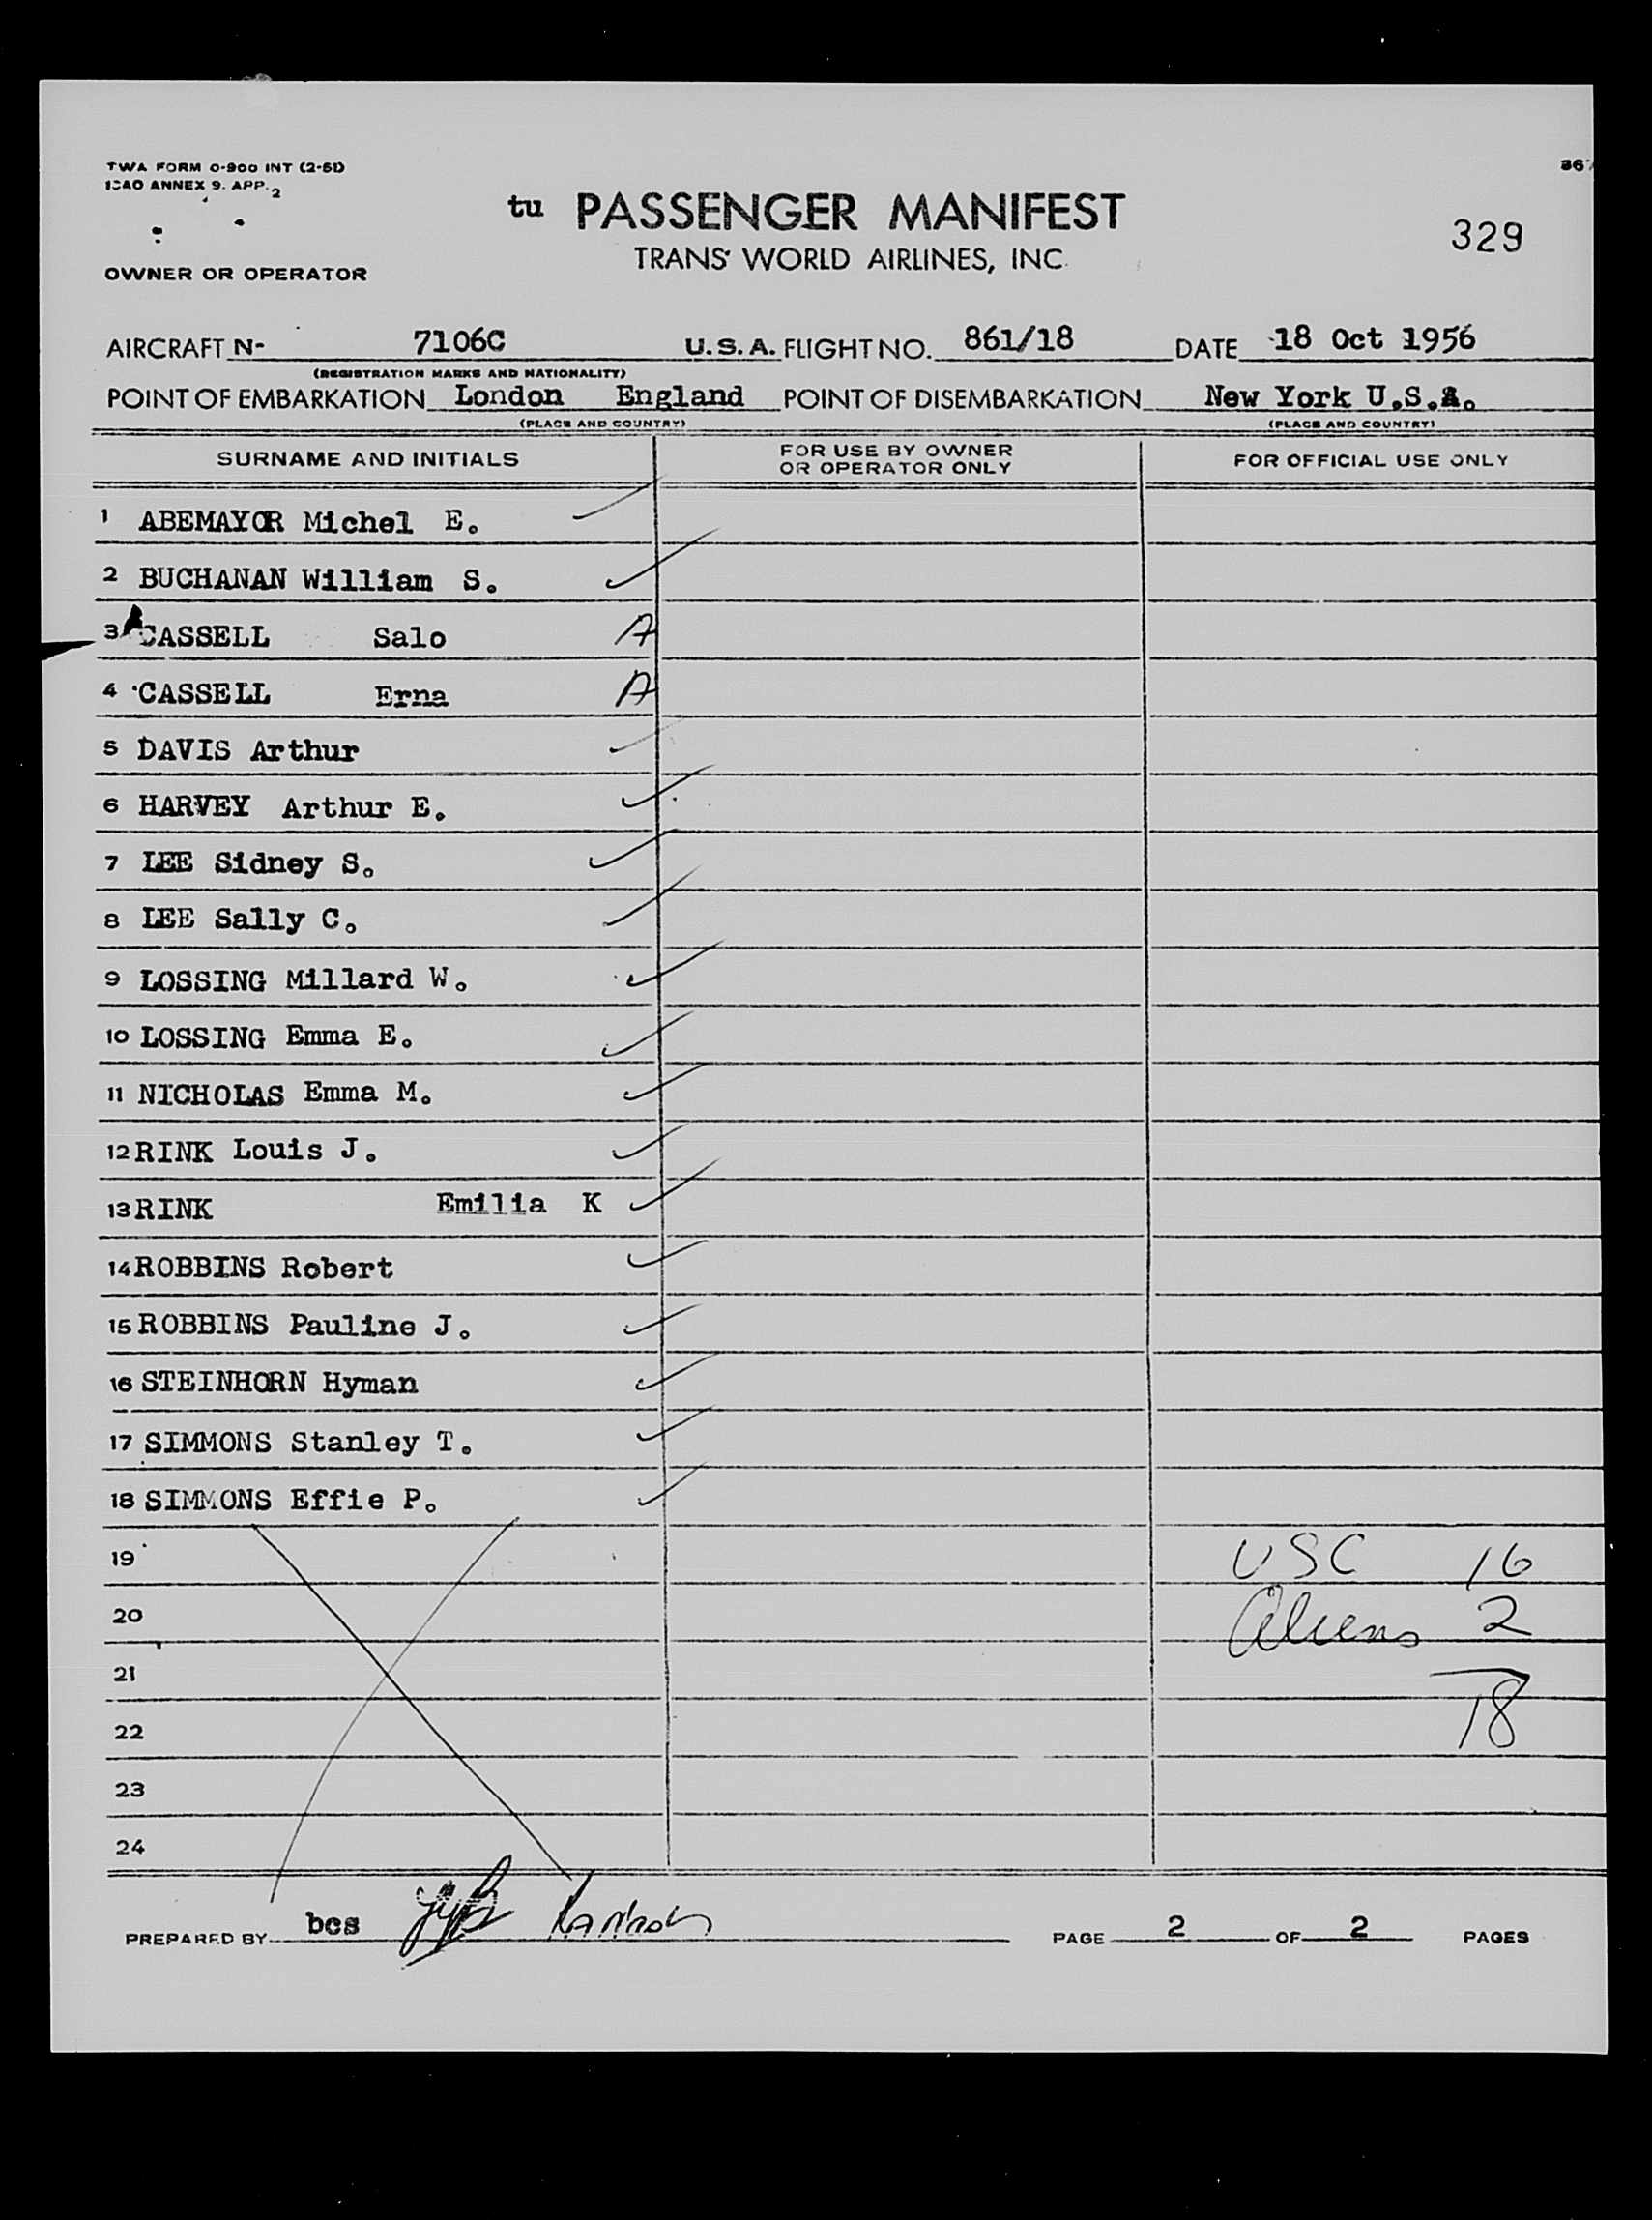 TWA FORM 0-900 INT (2-51)
ICAO ANNEX 9. APP. 2
tu PASSENGER MANIFEST
329
TRANS WORLD AIRLINES, INC.
OWNER OR OPERATOR
AIRCRAFT N- 7106C U.S.A. FLIGHT NO. 861/18 DATE 18 Oct 1956
(REGISTRATION MARKS AND NATIONALITY)
POINT OF EMBARKATION London England POINT OF DISEMBARKATION New York U.S.A.
(PLACE AND COUNTRY) (PLACE AND COUNTRY)
SURNAME AND INITIALS FOR USE BY OWNER OR OPERATOR ONLY FOR OFFICIAL USE ONLY
1 ABEMAYOR Michel E.
2 BUCHANAN William S.
3 CASSELL Salo A
4 CASSELL Erna A
5 DAVIS Arthur
6 HARVEY Arthur E.
7 LEE Sidney S.
8 LEE Sally C.
9 LOSSING Millard W.
10 LOSSING Emma E.
11 NICHOLAS Emma M.
12 RINK Louis J.
13 RINK Emilia K
14 ROBBINS Robert
15 ROBBINS Pauline J.
16 STEINHORN Hyman
17 SIMMONS Stanley T.
18 SIMMONS Effie P.
19 USC 16
20 Aliens 2
21
22 18
23
24
PREPARED BY bcs PAGE 2 OF 2 PAGES